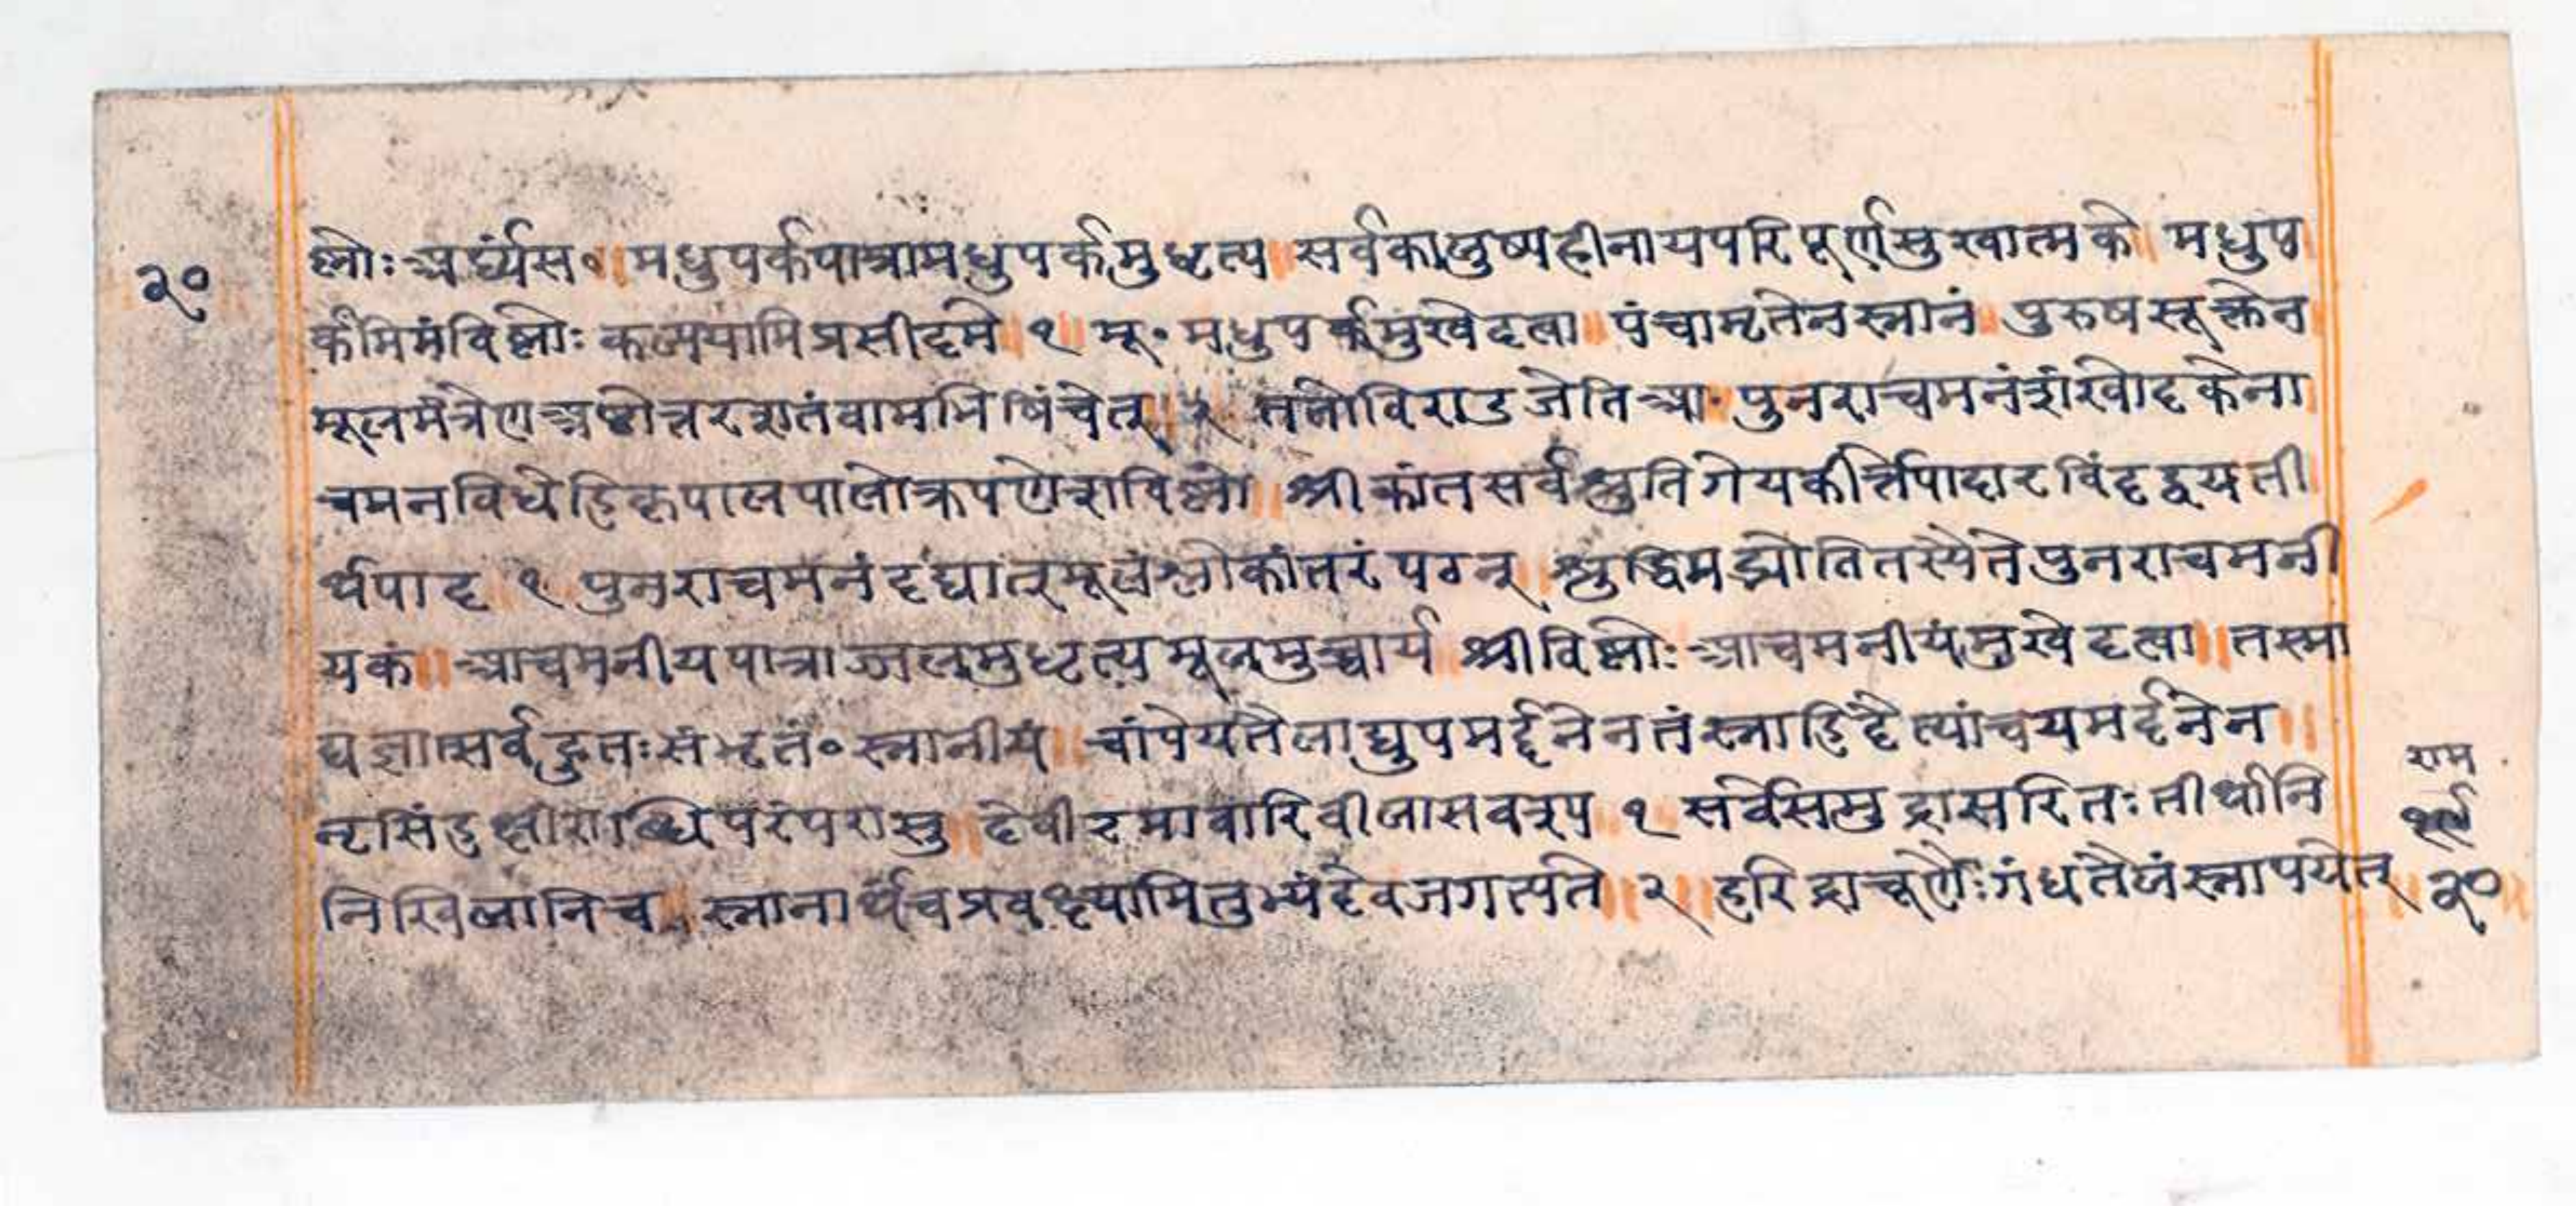 २०
ष्नोः अर्घ्यंस० ॥ मधुपर्कपात्रामधुपर्कमुधृत्य ॥ सर्वकालुष्यहीनायपरिपूर्णसुखात्मके ॥ मधुप
र्कमिमंविष्नोः कल्पयामि प्रसीदमे ॥ १ ॥ मू॰ मधुपर्कंमुखेदत्वा ॥ पंचामृतेनस्नानं ॥ पुरुषसूक्तेन
मूलमंत्रेण अष्टोत्तरशतंवामभिषिंचेत् ॥ ततोविराडजेति आ॰ पुनराचमनंशंखोदकेना
चमनविधेहिकृपालपालो ॥ श्रीकांतसर्वश्रुतिगेयकीर्त्तिपादारविंदद्वयती
र्थपाद १ पुनराचमनंदद्यात्मूलंश्लोकांतरंपठन् ॥ पुनराचमनी
यकं ॥ आचमनीयपात्राज्जलमुधृत्य मूलमुच्चार्य ॥ श्रीविष्नोः आचमनीयंमुखेदत्वा ॥ तस्मा
द्यज्ञात्सर्वहुतःसंभृतं० स्नानीयं ॥ चांपेयतैलाद्युपमर्द्दनेनतंस्नाहिदैत्यांचयमर्द्दनेन ॥
नृसिंहक्षीराब्धिपरंपरासु ॥ देवीरमावारि १ सर्वेसमुद्रासरितःतीर्थानि
निखिलानिच ॥ स्नानार्थंचप्रवक्ष्यामितुभ्यंदेवजगत्पते ॥ २ ॥ हरिद्राचूर्णैःगंधतैलंस्नापयेत्
राम
२०